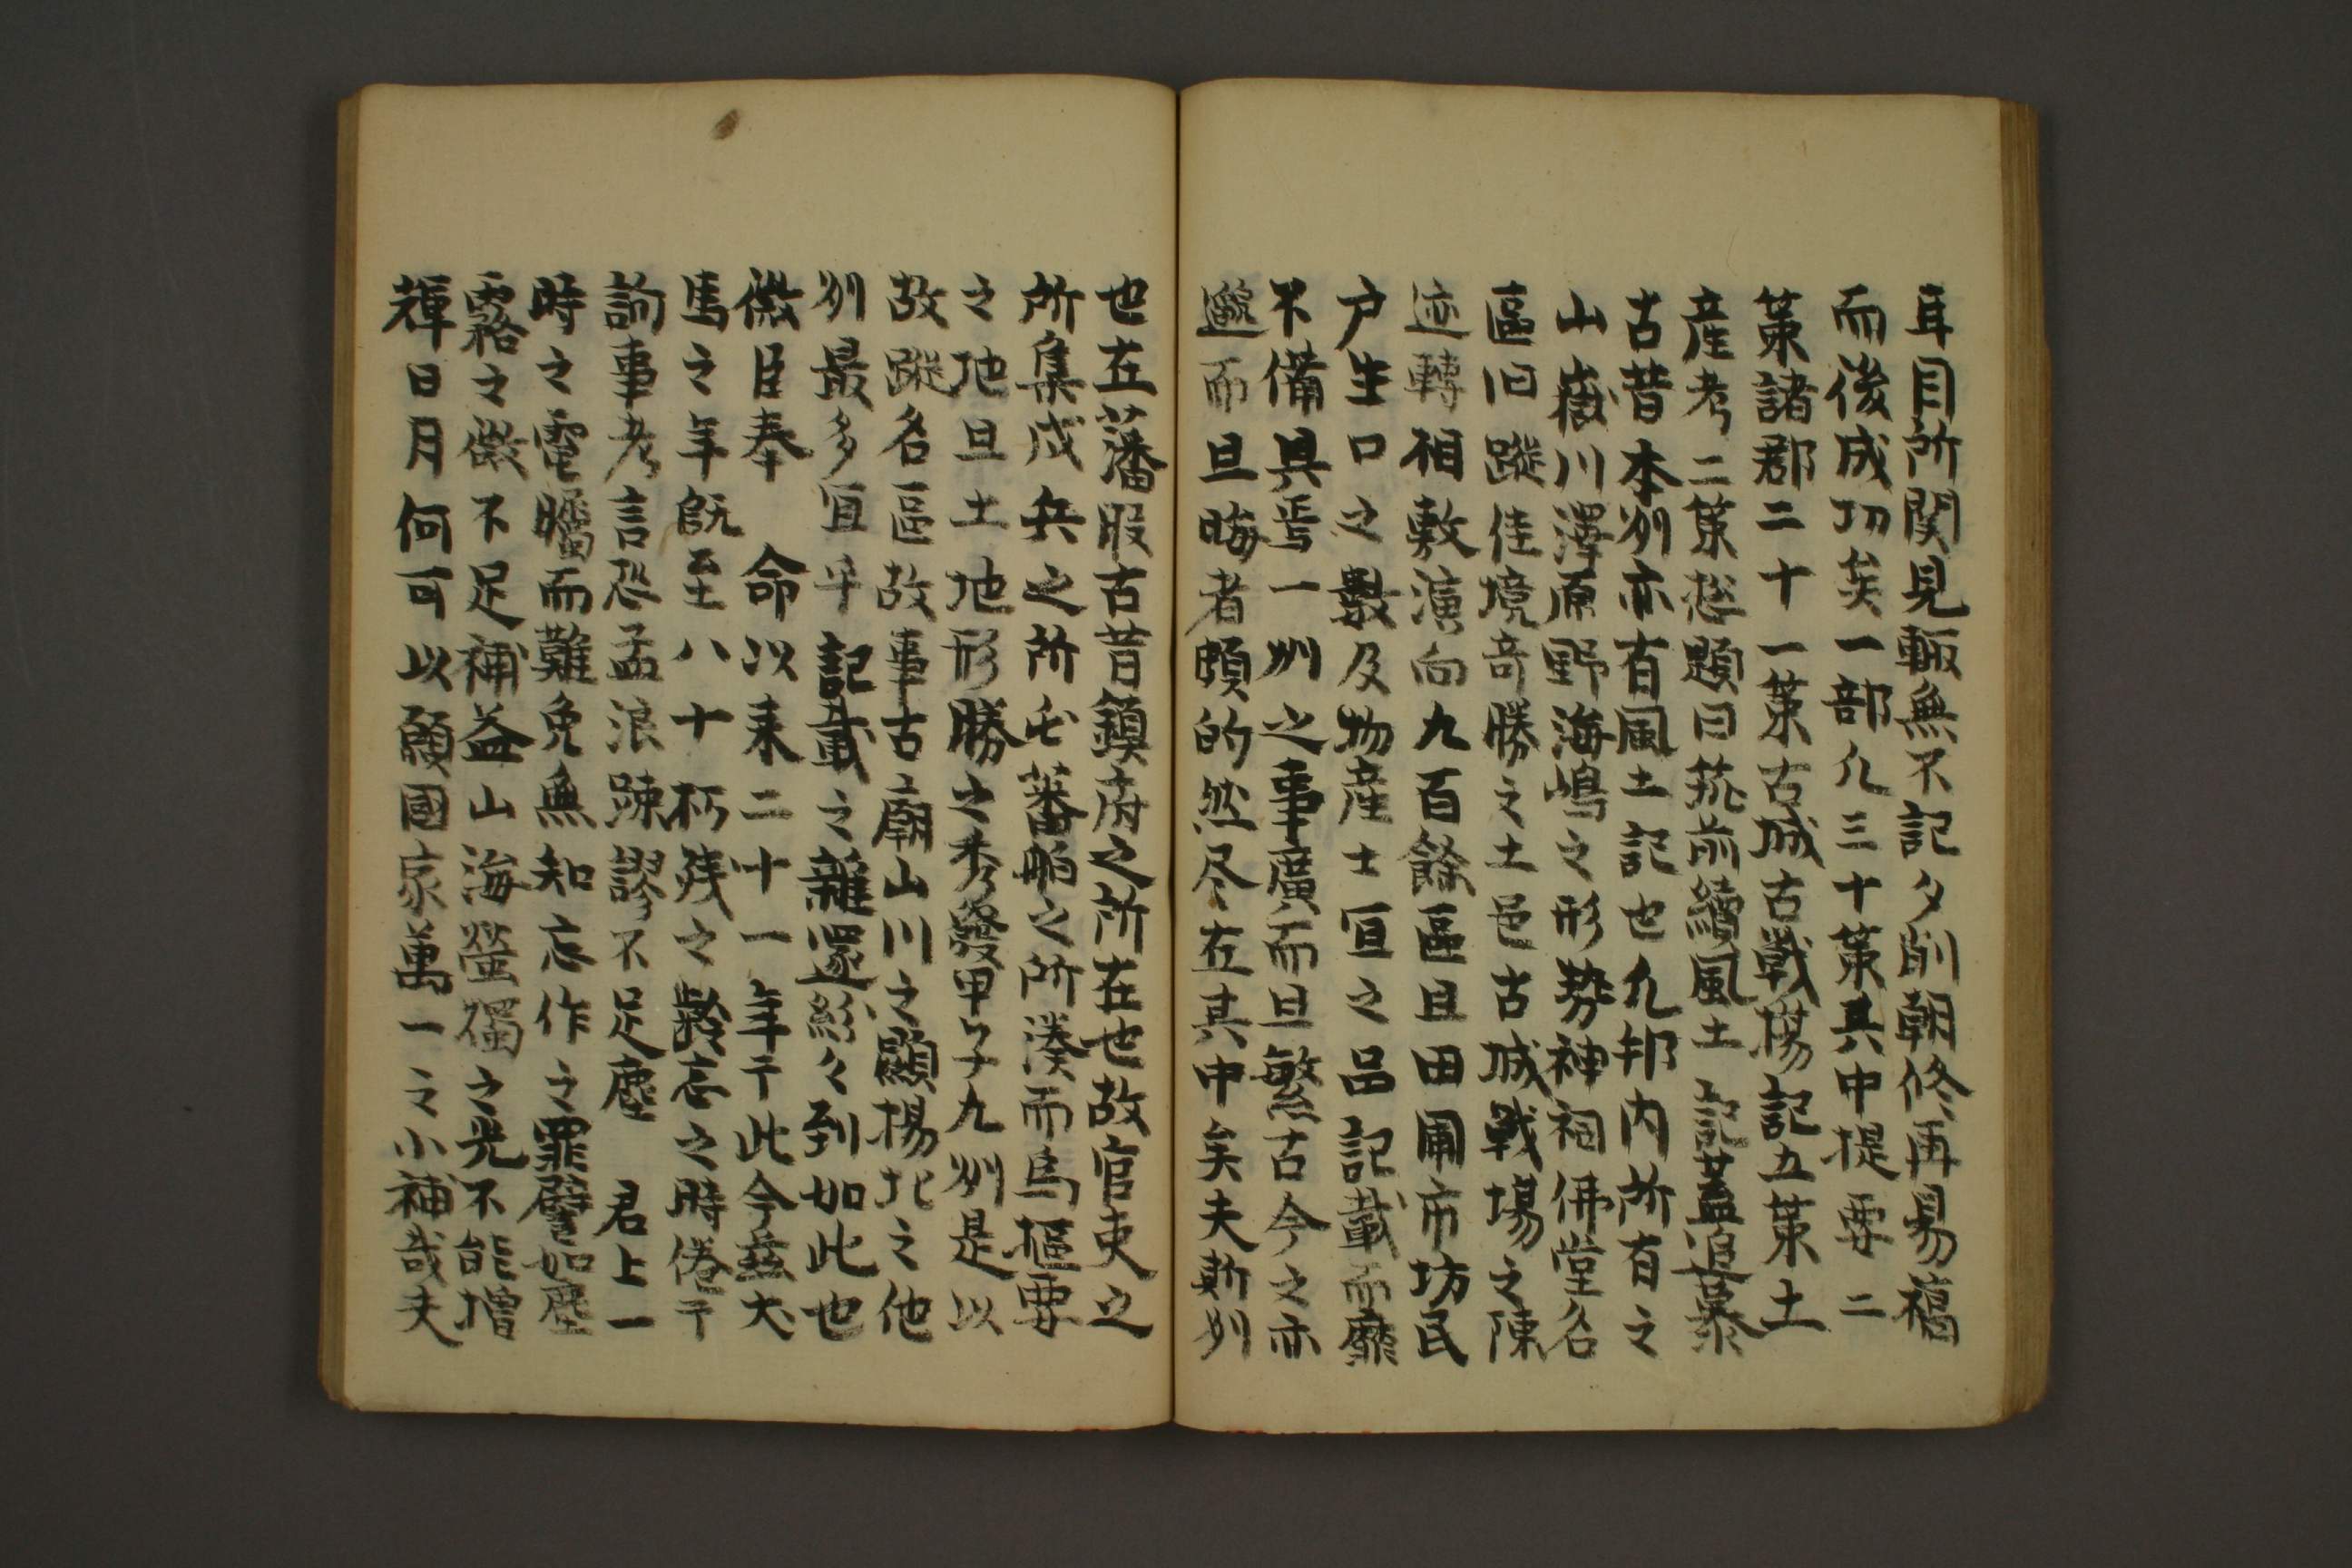 耳目所関見輙無不記夕削朝修再易褔
而後成功矣一部凢三十策其中提要二
策諸郡二十一策古城古戦場記五策土
産考二策惣題曰筑前續風土記蓋追慕
古昔本州亦有風土記也凢邦内所有之
山嶽川澤原野海嶋之形勢神祠佛堂名
區旧蹤佳境奇勝之土邑古城戦場之陳
迹轉相敷演向九百餘區且田圃市坊民
戸生口之數及物産士宜之品記載而靡
不備具焉一州之事廣而且繁古今之亦
邈而且晦者頗的然尽在其中矣夫斯州
也在藩服古昔鎮府之所在也故官吏之
所集戍兵之所屯蕃舶之所湊而為樞要
之地且土地形勝之秀發甲于九州是以
故蹤名區故事古廟山川之顯揚比之他
州最多宜乎記載之雑還繇々到如此也
微臣奉 命以来二十一年于此今茲犬
馬之年既至八十朽残之齡忘之時倦于
詢事考言恐孟浪踈謬不足塵 君上一
時之電矚而難免無知忘作之罪譬如塵
露之微不足補益山海螢燭之光不能増
輝日月何可以願國家萬一之小補哉夫